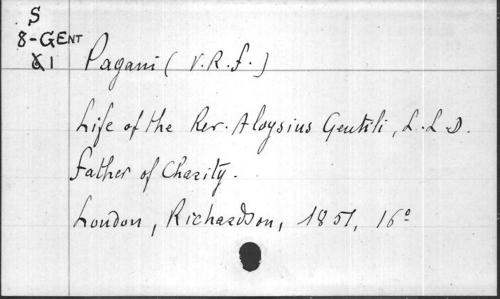 S
8-GENT
Pagani (V.R.f.)
Life of the Rev. Aloysius Gentili, L.L.D.
father of Charity.
London, Richardson, 1851, 16º